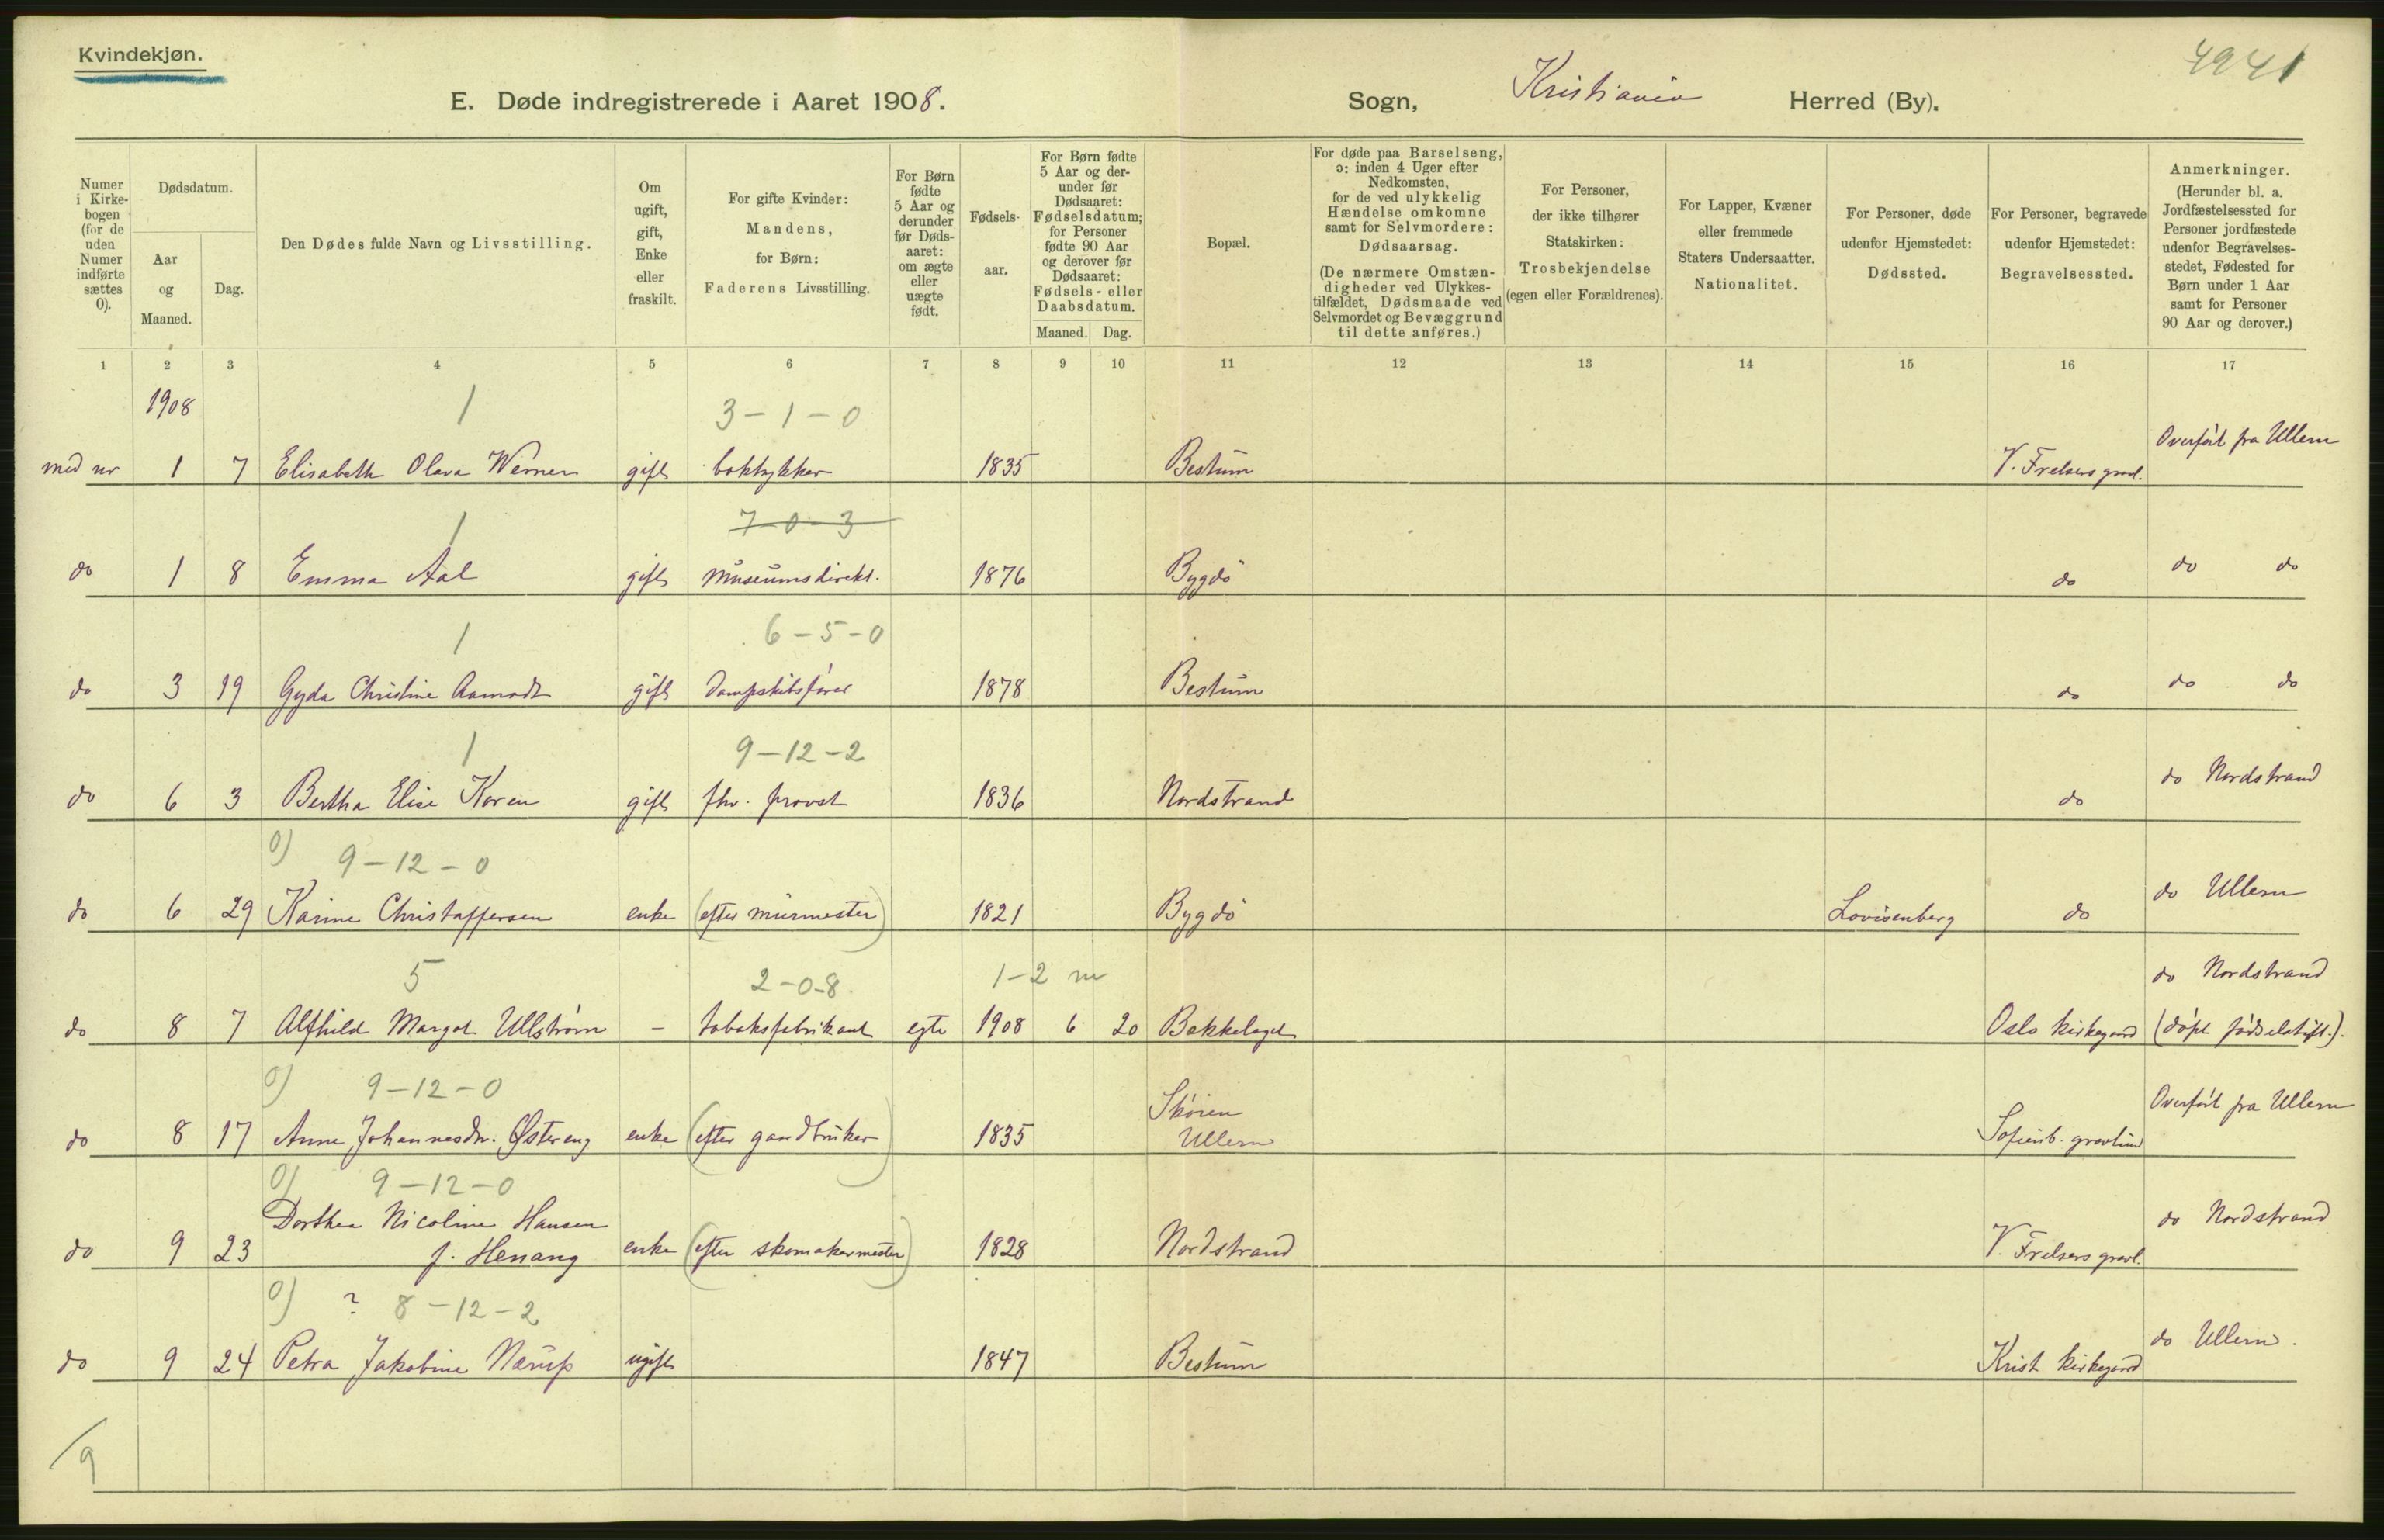 Kvindekjøn.
4941
E. Døde indregistrerede i Aaret 1908.
Sogn, Kristiania Herred (By).
Numer i Kirkebogen (for de uden Numer indførte sættes 0).
Dødsdatum.
Aar og Maaned.
Dag.
Den Dødes fulde Navn og Livsstilling.
Om ugift, gift, Enke eller fraskilt.
For gifte Kvinder: Mandens, for Børn: Faderens Livsstilling.
For Børn fødte 5 Aar og derunder før Dødsaaret: om ægte eller uægte født.
Fødselsaar.
For Børn fødte 5 Aar og derunder før Dødsaaret: Fødselsdatum; for Personer fødte 90 Aar og derover før Dødsaaret: Fødsels- eller Daabsdatum.
Maaned. Dag.
Bopæl.
For døde paa Barselseng, ɔ: inden 4 Uger efter Nedkomsten, for de ved ulykkelig Hændelse omkomne samt for Selvmordere: Dødsaarsag.
(De nærmere Omstændigheder ved Ulykkestilfældet, Dødsmaade ved Selvmordet og Bevæggrund til dette anføres.)
For Personer, der ikke tilhører Statskirken: Trosbekjendelse (egen eller Forældrenes).
For Lapper, Kvæner eller fremmede Staters Undersaatter. Nationalitet.
For Personer, døde udenfor Hjemstedet: Dødssted.
For Personer, begravede udenfor Hjemstedet: Begravelsessted.
Anmerkninger.
(Herunder bl. a. Jordfæstelsessted for Personer jordfæstede udenfor Begravelsesstedet, Fødested for Børn under 1 Aar samt for Personer 90 Aar og derover.)
1 2 3 4 5 6 7 8 9 10 11 12 13 14 15 16 17
1908 1 3-1-0
med nr 1 7 Elisabeth Olava Werner gift boktykker 1835 Bestum V. Frelsers gravl. Overført fra Ullern
1 7-0-3
do 1 8 Emma Aal gift museumsdirekt. 1876 Bygdø do do do
1 6-5-0
do 3 19 Gyda Christine Aamodt gift dampskibsfører 1878 Bestum do do do
1 9-12-2
do 6 3 Bertha Elise Koren gift fhv. provst 1836 Nordstrand do do Nordstrand
0) 9-12-0
do 6 29 Karine Christoffersen enke (efter murmester) 1821 Bygdø Lovisenberg do do Ullern
5 2-0-8. 1-2 m do Nordstrand
do 8 7 Alfhild Margot Ullstrøm - tobaksfabrikant egte 1908 6 20 Bekkelaget Oslo kirkegaard (døpt fødselstift.).
0) 9-12-0
do 8 17 Anne Johannesdr. Østereng enke (efter gaardbruker) 1835 Skøien Ullern Sofienb. gravlund Overført fra Ullern
0) 9-12-0
Dorthea Nicoline Hansen
do 9 23 f. Henang enke (efter skomakermester) 1828 Nordstrand V. Frelsers gravl. do Nordstrand
0) ? 8-12-2
do 9 24 Petra Jakobine Nærup ugift 1847 Bestum Krist kirkegaard do Ullern.
/9